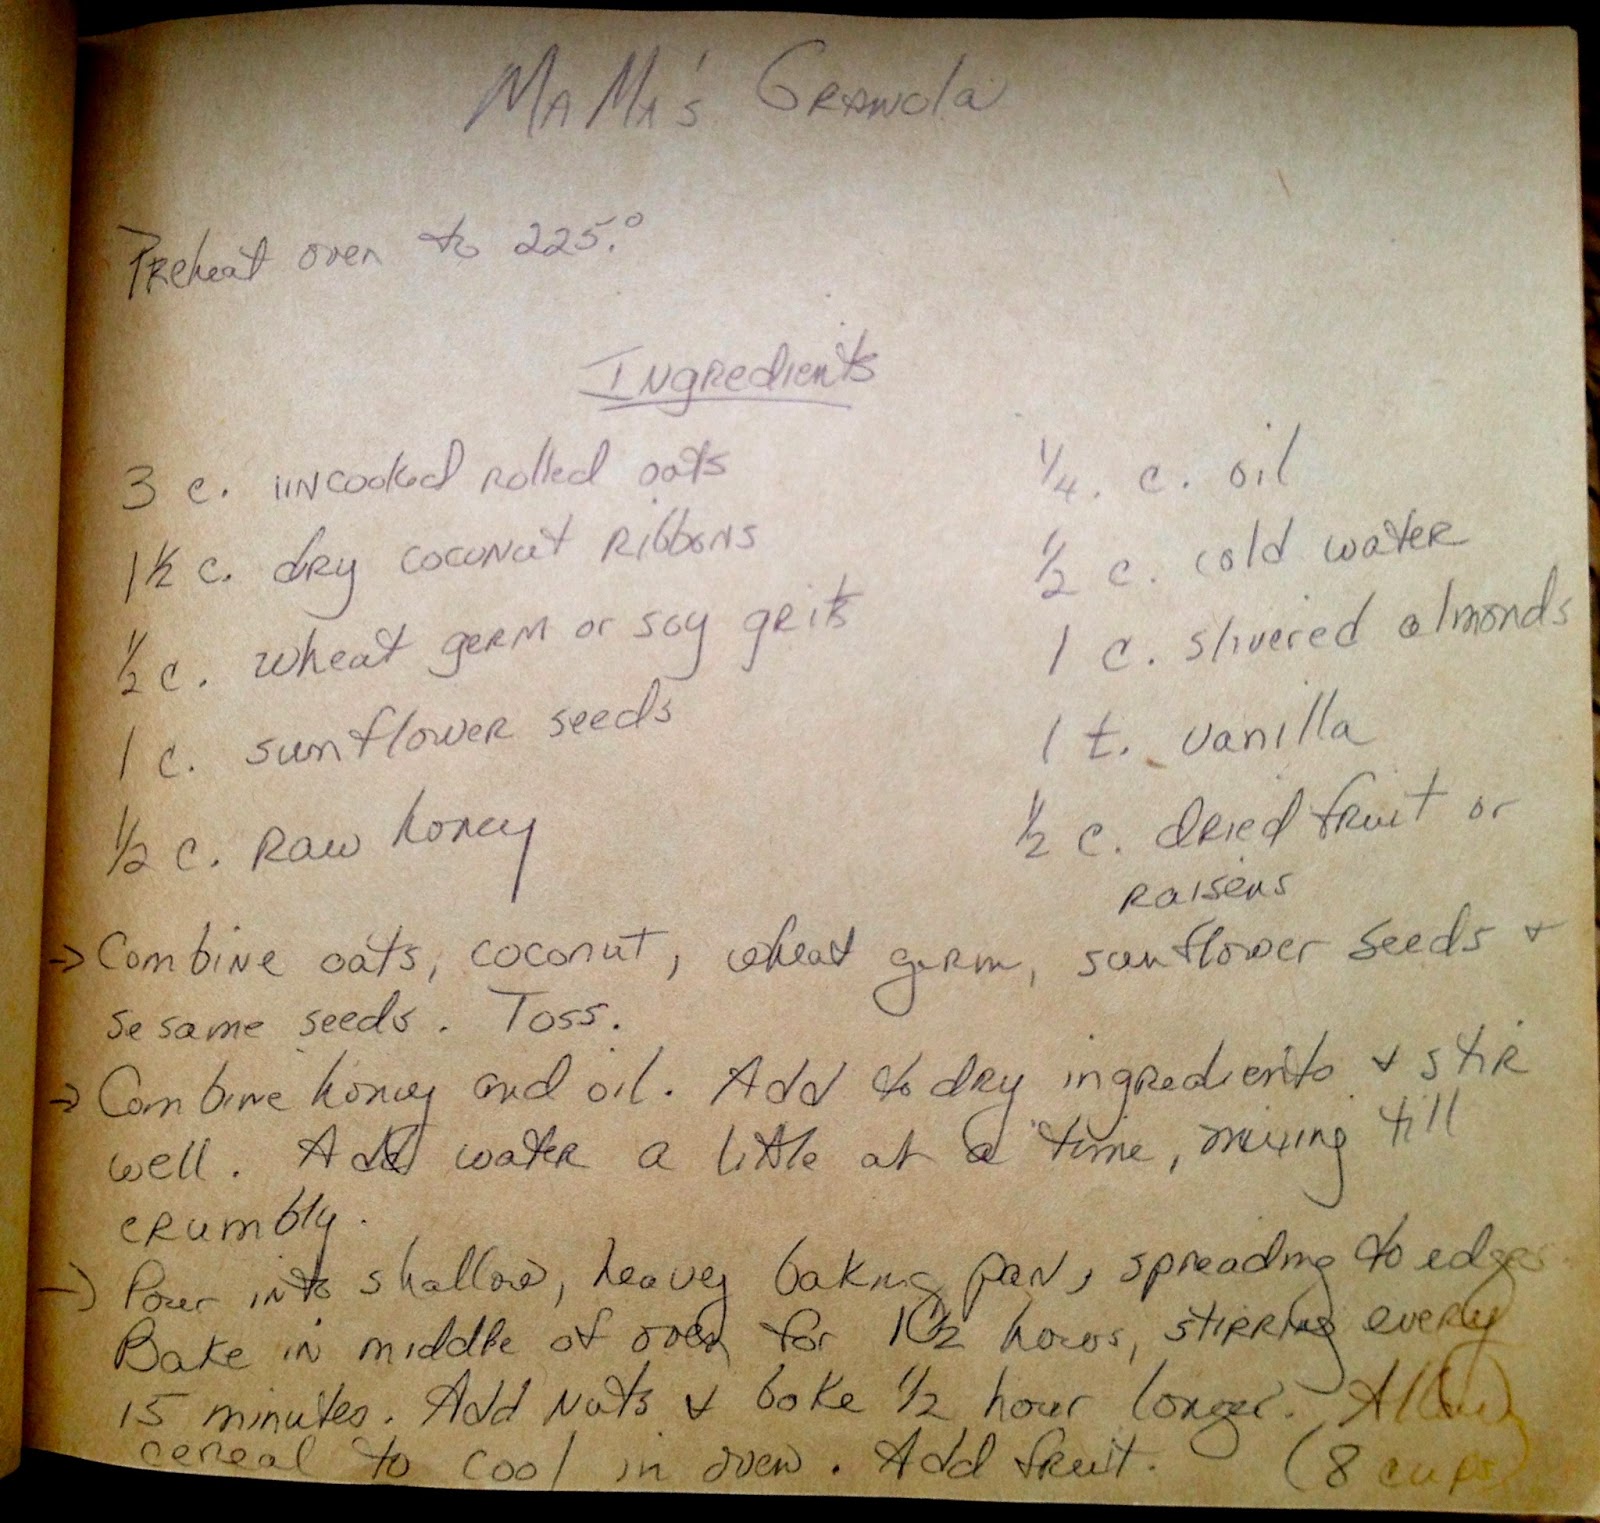 MaMa's Granola
Preheat oven to 225.°
Ingredients
3 c. uncooked rolled oats
1½ c. dry coconut ribbons
½ c. wheat germ or soy grits
1 c. sunflower seeds
½ c. raw honey
¼. c. oil
½ c. cold water
1 c. slivered almonds
1 t. vanilla
½ c. dried fruit or
raisens
→ Combine oats, coconut, wheat germ, sunflower seeds &
sesame seeds. Toss.
→ Combine honey and oil. Add to dry ingredients & stir
well. Add water a little at a time, mixing till
crumbly.
→ Pour into shallow, heavy baking pan, spreading to edges.
Bake in middle of oven for 1½ hours, stirring every
15 minutes. Add nuts & bake ½ hour longer. Allow
cereal to cool in oven. Add fruit. (8 cups)